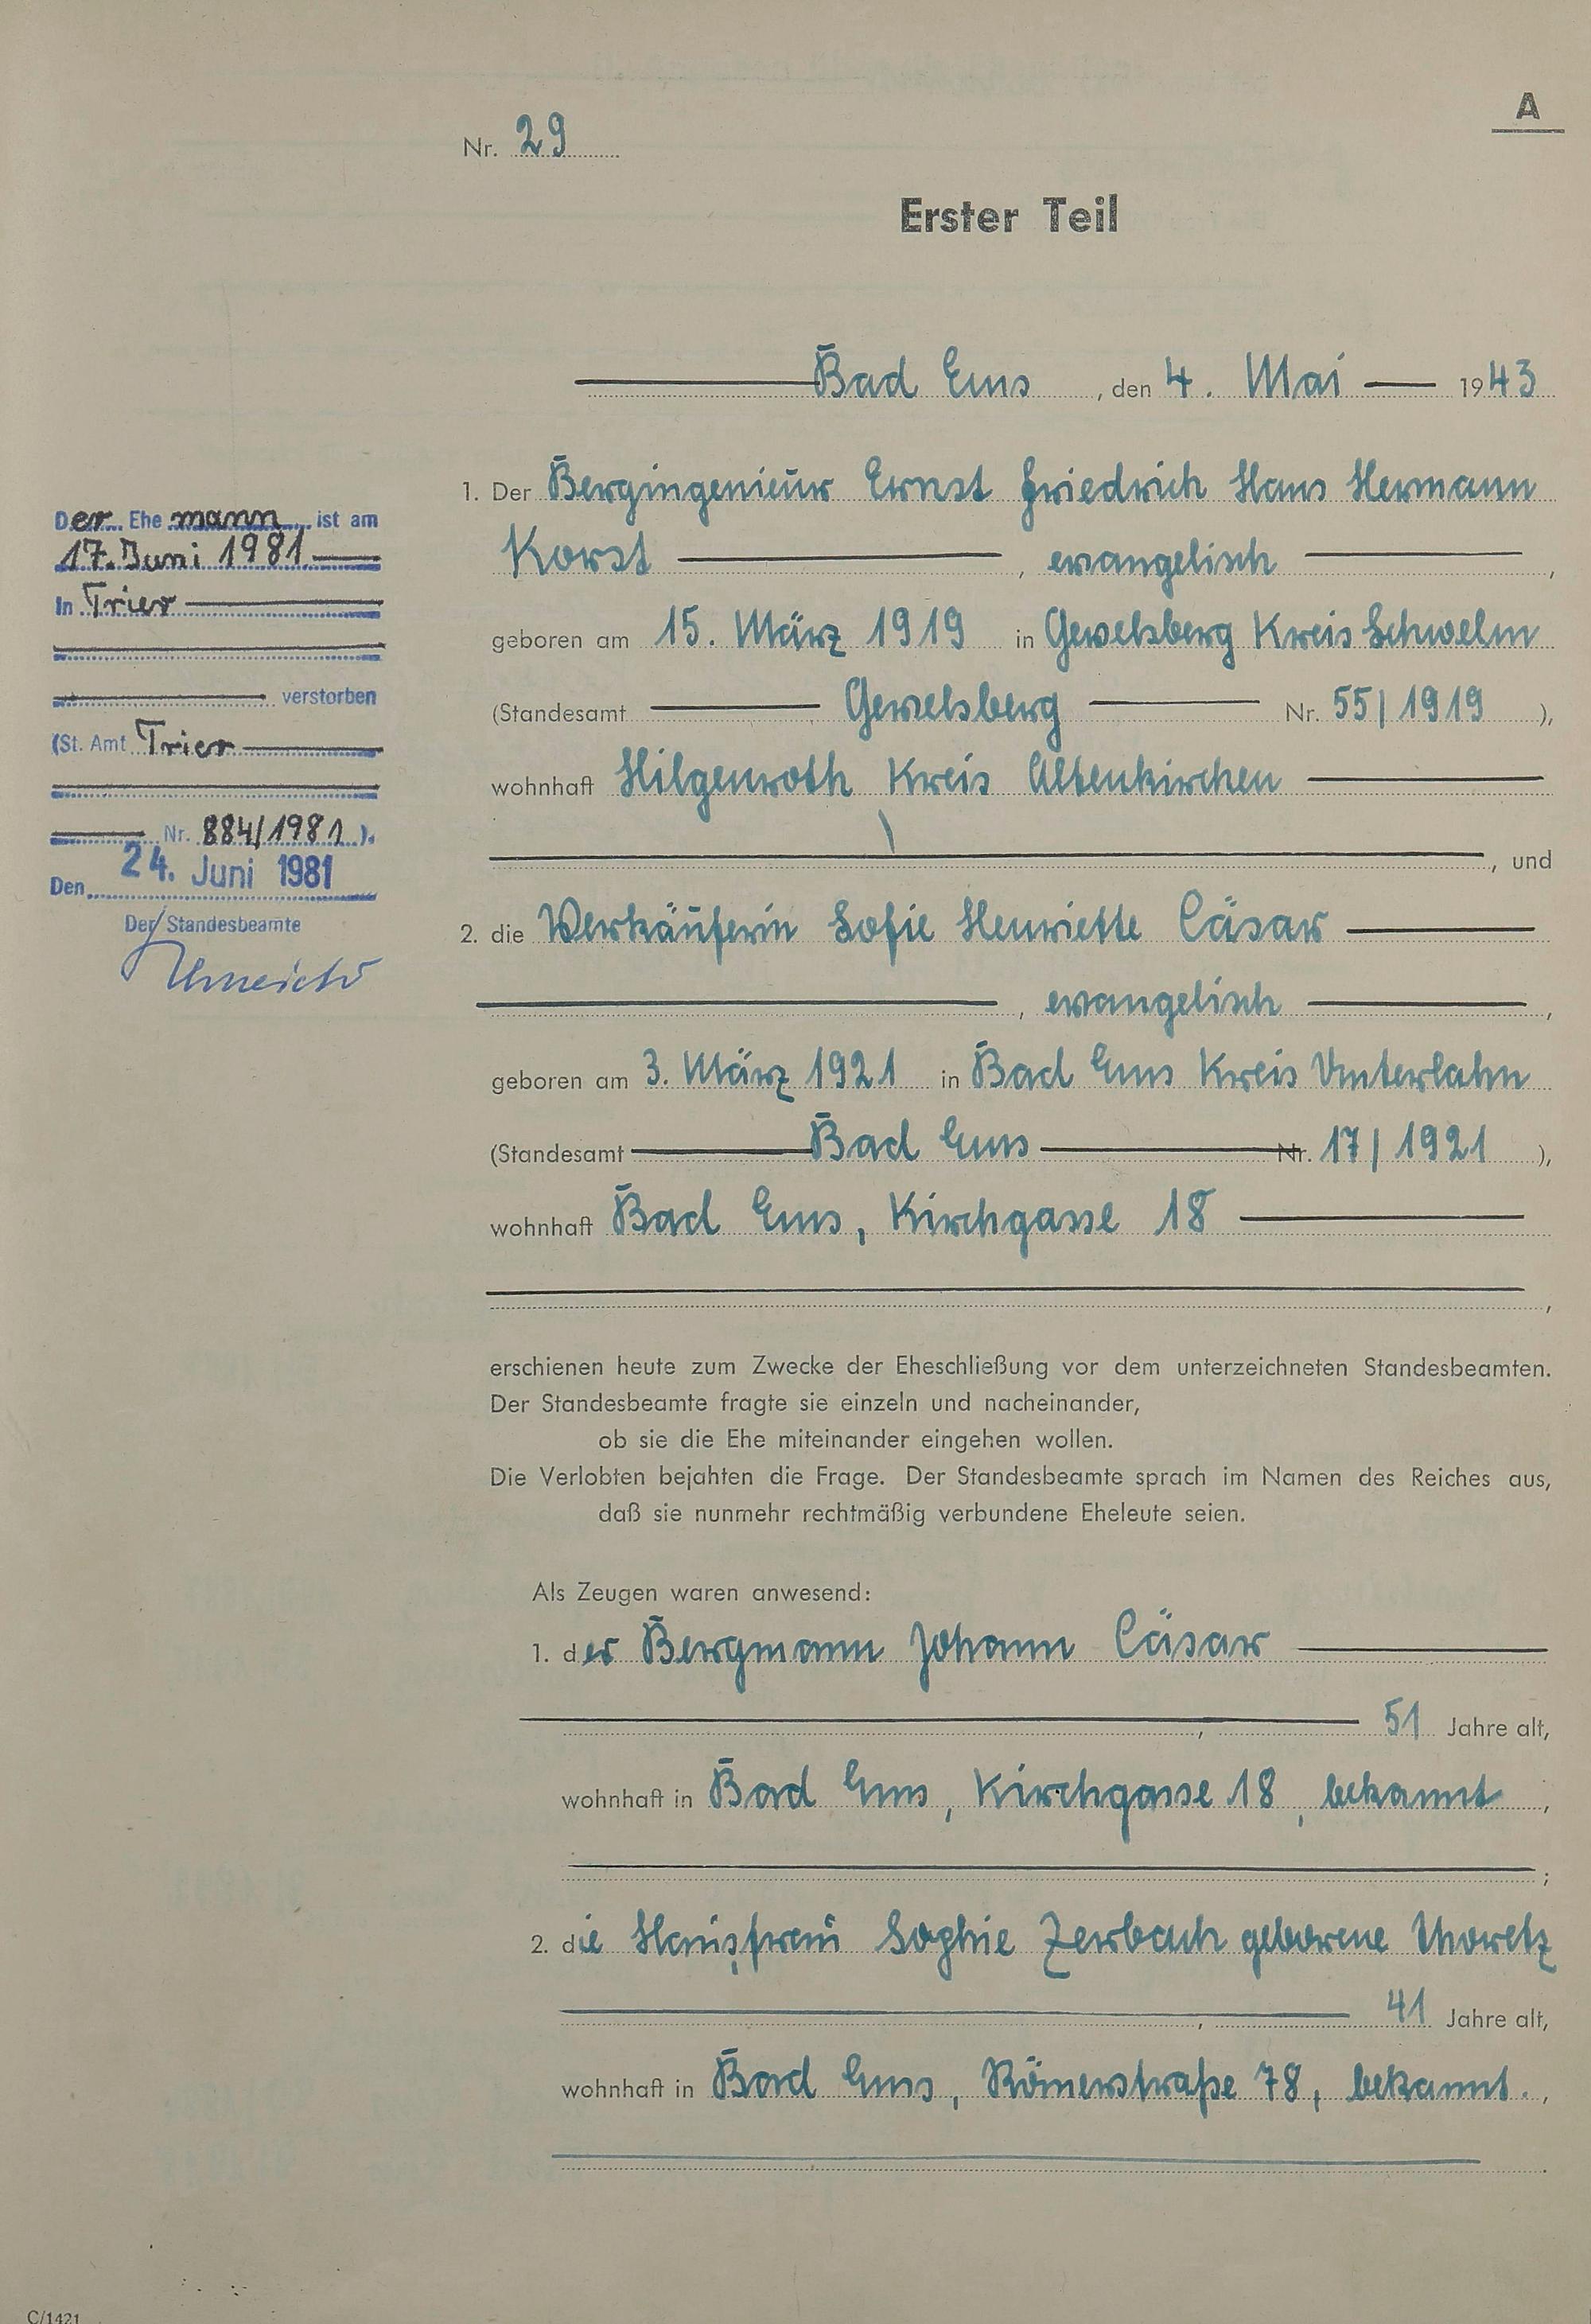 A
Nr. 29
Erster Teil
Bad Ems, den 4. Mai 1943
1. Der Bergingenieur Ernst Friedrich Hans Hermann
Korst, evangelisch,
geboren am 15. März 1919 in Gevelsberg Kreis Schwelm
(Standesamt Gevelsberg Nr. 55/1919),
wohnhaft Hilgenroth Kreis Altenkirchen
, und
2. die Verkäuferin Sofie Henriette Cäsar
, evangelisch,
geboren am 3. März 1921 in Bad Ems Kreis Unterlahn
(Standesamt Bad Ems Nr. 17/1921),
wohnhaft Bad Ems, Kirchgasse 18
,
erschienen heute zum Zwecke der Eheschließung vor dem unterzeichneten Standesbeamten.
Der Standesbeamte fragte sie einzeln und nacheinander,
ob sie die Ehe miteinander eingehen wollen.
Die Verlobten bejahten die Frage. Der Standesbeamte sprach im Namen des Reiches aus,
daß sie nunmehr rechtmäßig verbundene Eheleute seien.
Als Zeugen waren anwesend:
1. der Bergmann Johann Cäsar
, 51 Jahre alt,
wohnhaft in Bad Ems, Kirchgasse 18, bekannt,
;
2. die Hausfrau Sophie Zerbach geborene
, 41 Jahre alt,
wohnhaft in Bad Ems, Römerstraße 78, bekannt.,
.
Der Ehemann ist am
17. Juni 1981
In Trier
verstorben
(St. Amt Trier
Nr. 884/1981).
Den 24. Juni 1981
Der Standesbeamte
C/1421